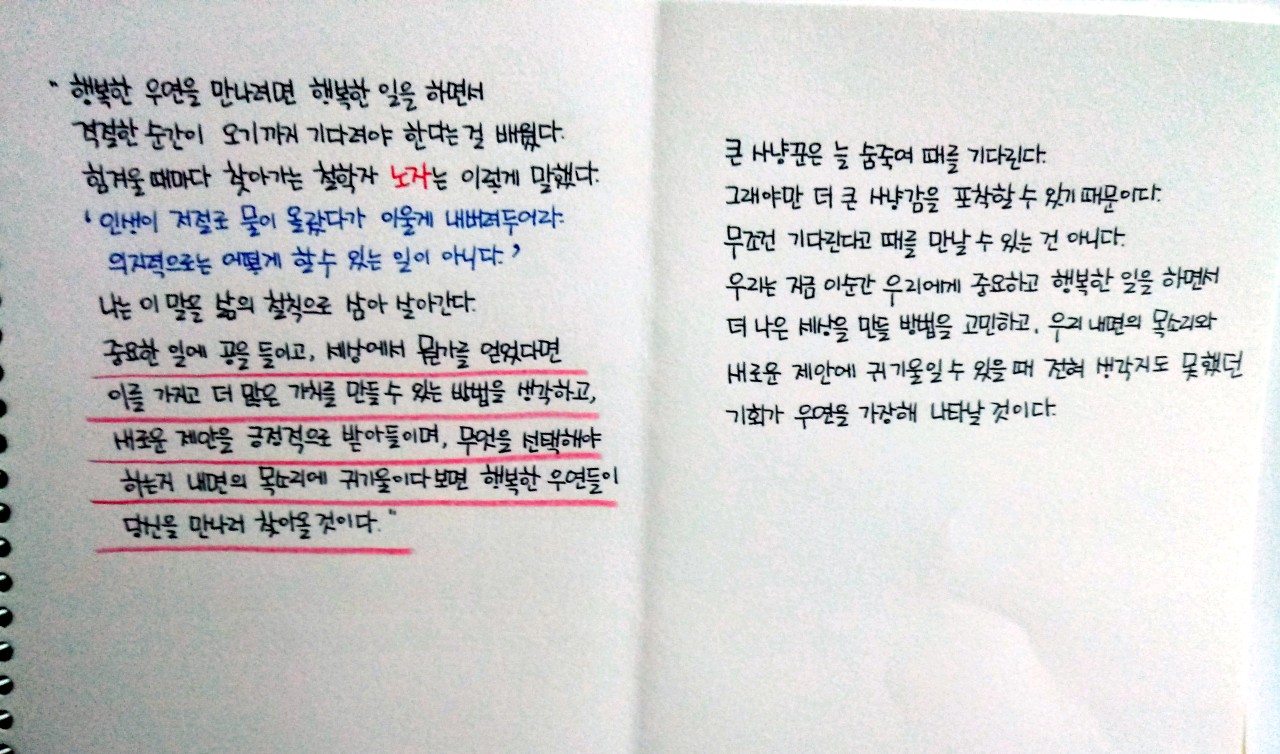 "행복한 우연을 만나려면 행복한 일을 하면서
적절한 순간이 오기까지 기다려야 한다는 걸 배웠다.
힘겨울 때마다 찾아가는 철학자 노자는 이렇게 말했다.
'인생이 저절로 물이 올랐다가 이울게 내버려두어라.
의지적으로는 어떻게 할 수 있는 일이 아니다.'
나는 이 말을 삶의 철칙으로 삼아 살아간다.
중요한 일에 공을 들이고, 세상에서 뭔가를 얻었다면
이를 가지고 더 많은 가치를 만들 수 있는 방법을 생각하고,
새로운 제안을 긍정적으로 받아들이며, 무엇을 선택해야
하는지 내면의 목소리에 귀기울이다보면 행복한 우연들이
당신을 만나러 찾아올 것이다."
큰 사냥꾼은 늘 숨죽여 때를 기다린다.
그래야만 더 큰 사냥감을 포착할 수 있기 때문이다.
무조건 기다린다고 때를 만날 수 있는 건 아니다.
우리는 지금 이순간 우리에게 중요하고 행복한 일을 하면서
더 나은 세상을 만들 방법을 고민하고, 우리 내면의 목소리와
새로운 제안에 귀기울일 수 있을 때 전혀 생각지도 못했던
기회가 우연을 가장해 나타날 것이다.